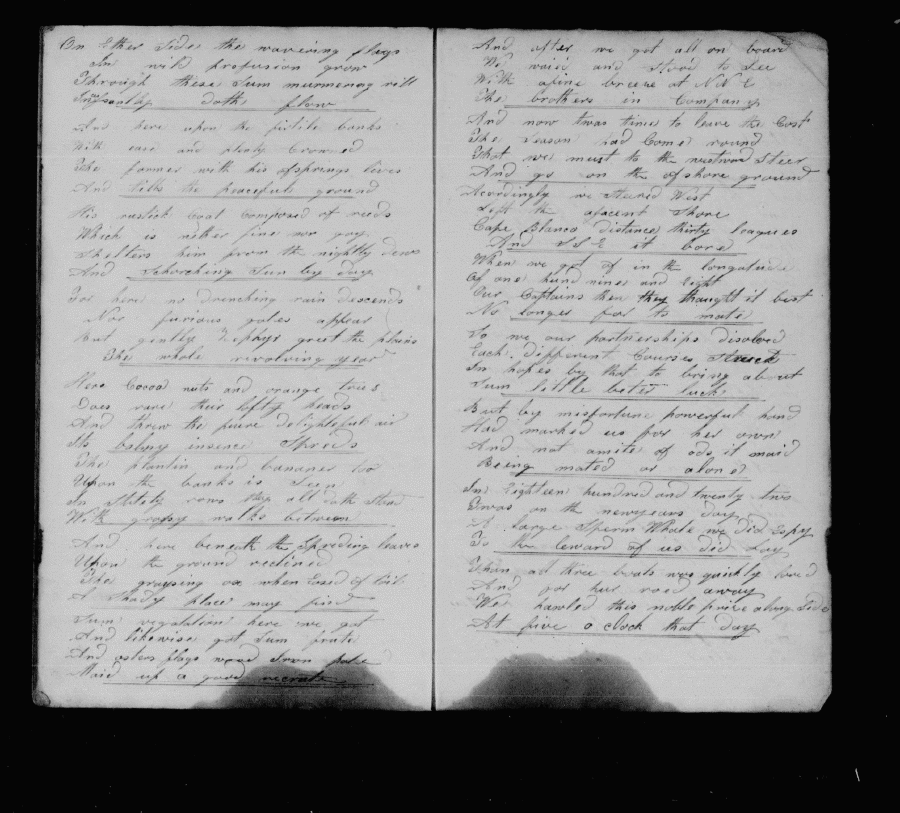 On Ether Side the wavering flags
In wild profusion grow
Through these Sum murmering rill
doth flow
And here upon the firtile banks
With ease and plenty Crowned
The farmer with his ofsprings lives
And tills the peaceful ground
His rustick Coat Composed of reeds
Which is nether fine nor gay
Shelters him from the nightly dew
And Schorching Sun by day
For here no drenching rain descends
Nor furious gales appear
But gently Zephyr greet the plains
The whole revolving year
Here Cocoa nuts and orange trees
Does rare their lofty heads
And threw the puire delightful air
Its balmy insence Spreds
The plantin and bananer too
Upon the banks is Seen
In Stitely rows they all doth Stand
With grassy walks between
And here beneath the Spreding leaves
Upon the ground reclined
The graysing ox when Eased of toil
A Shady place may find
Sum vegatation here we got
And likewise got Sum fruite
And from
Maid up a good recrute
And after we got all on board
We waid and Stood to See
With afine breeze at N N E
The brothers in Company
And now twas time to leave the Cost
The Season had Come round
That we must to the westward Steer
And go on the ofshore ground
Acordingly we Steared West
Left the ajacent Shore
Cape Blanco distance thirty leagues
And S S E it bore
When we got of in the longatude
Of one hund nine and Eight
Our Captains then they thaught it best
No longer for to mate
So we our partnerships disolved
Each different Courses Struck
In hopes by that to bring about
Sum little beter luck
But by misfortune powerful hand
Had marked us for her own
And not amite of ods it maid
Being mated or alone
In Eighteen hundred and twenty two
Twas on the newyears day
A large Sperm Whale we did Espy
To the leward of us did Lay
Than all three boats was quickly
And got her away
We hawled this noble prise along Side
At five a clock that day